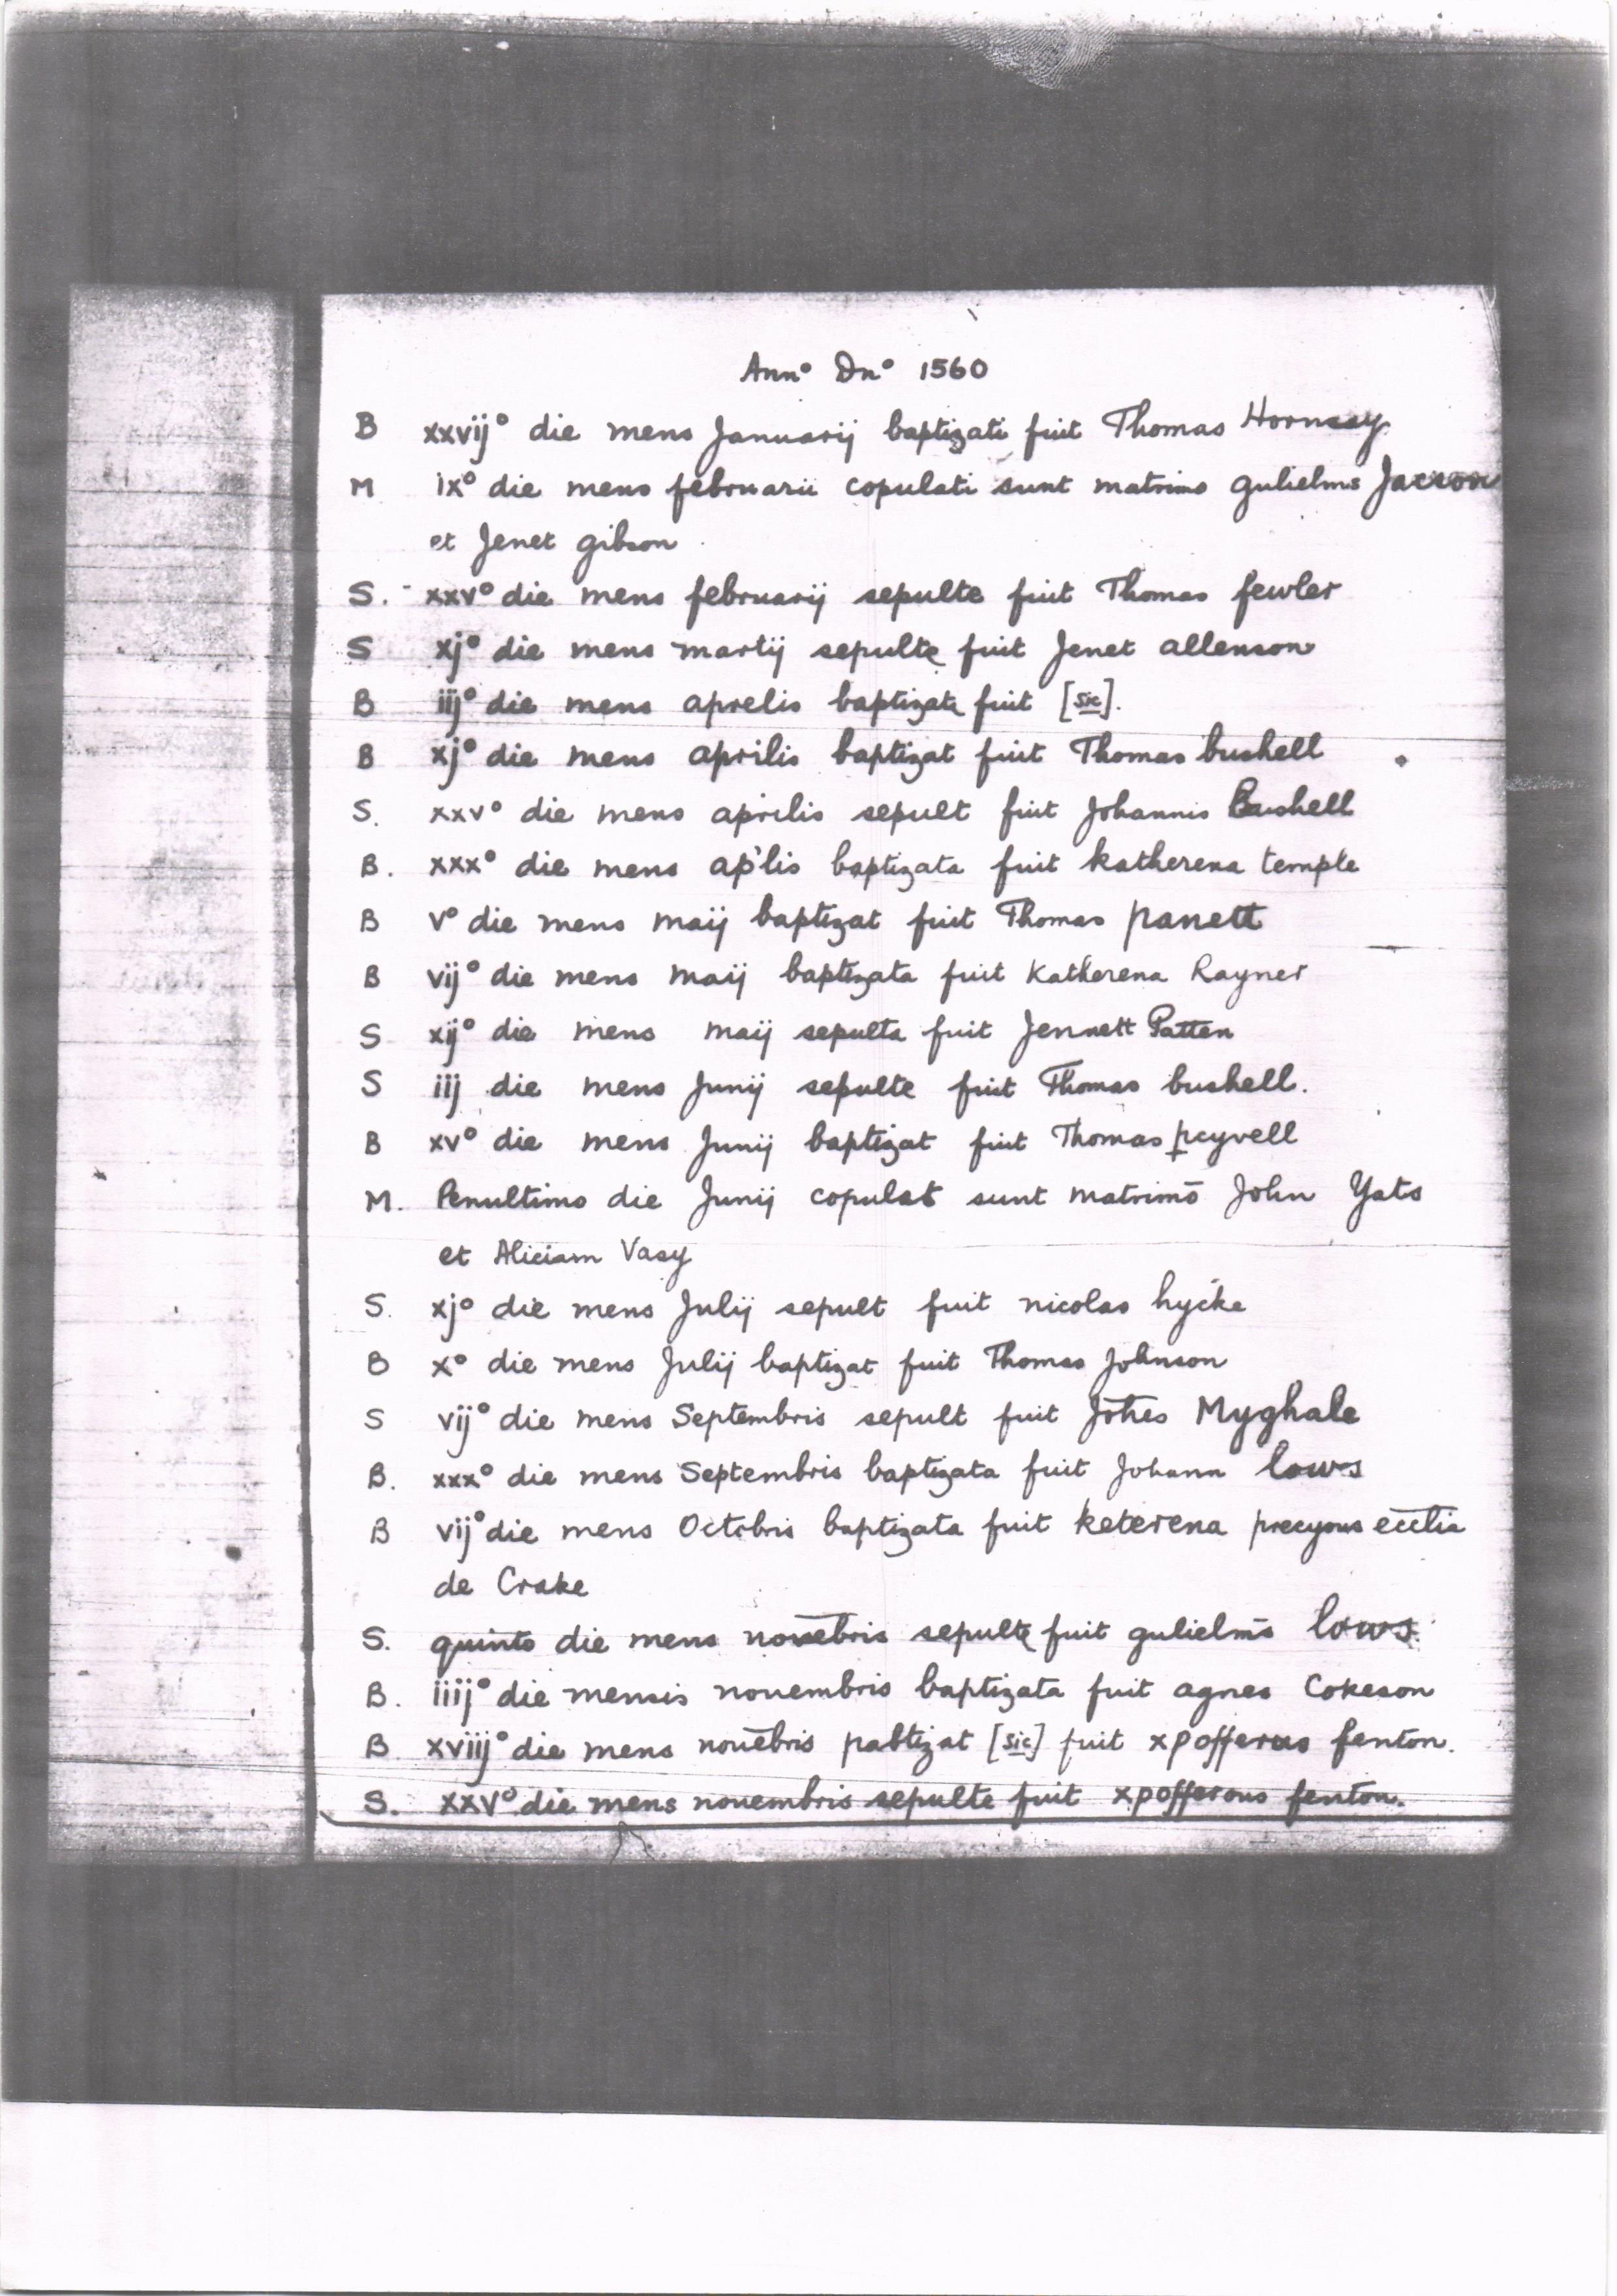 Annº Dnº 1560
B xxvijº die mens Januarij baptizati fuit Thomas Hornsay
M ixº die mens februarii copulati sunt matrimo gulielms Jacson
et Jenet gibson
S. xxvº die mens februarij sepulte fuit Thomas fewler
S xjº die mens martij sepulte fuit Jenet allenson
B iijº die mens aprelis baptizate fuit [sic].
B xjº die mens aprilis baptizat fuit Thomas bushell
S. xxvº die mens aprilis sepult fuit Johannis Bushell
B. xxxº die mens ap'lis baptizata fuit katherena temple
B vº die mens maij baptizat fuit Thomas panett
B vijº die mens maij baptizata fuit Katherena Rayner
S xijº die mens maij sepulta fuit Jennett Patten
S iij die mens Junij sepulte fuit Thomas bushell.
B xvº die mens Junij baptizat fuit Thomas pcyvell
M. Penultimo die Junij copulat sunt matrimō John Yats
et Aliciam Vasy
S. xjº die mens Julij sepult fuit nicolas hycke
B xº die mens Julij baptizat fuit Thomas Johnson
S vijº die mens Septembris sepult fuit Jōhes Myghale
B. xxxº die mens Septembris baptizata fuit Johann lows
B vijº die mens Octobris baptizata fuit keterena precyous ecctia
de Crake
S. quinto die mens novēbris sepulte fuit gulielmō lows.
B. iiijº die mensis nouembris baptizata fuit agnes Cokeson
B xviijº die mens nouēbris pabtizat [sic] fuit xpofferus fenton.
S. xxvº die mens nouembris sepulte fuit xpofferous fenton.